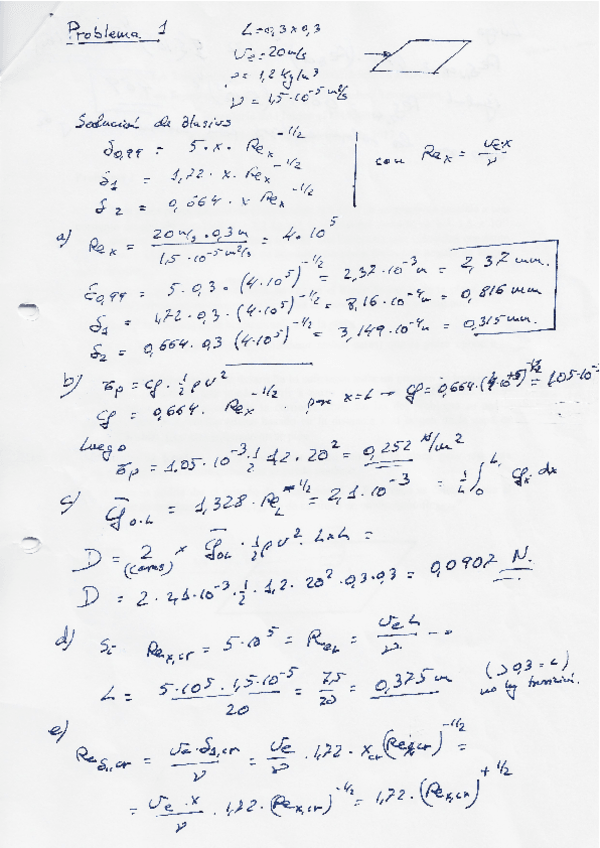 Problema 1
L = 0,3 x 0,3
Ue = 20 m/s
ρ = 1,2 kg/m³
ν = 1,5·10⁻⁵ m²/s
Solución de Blasius
δ0,99 = 5·x·Rex^-1/2
δ1 = 1,72·x·Rex^-1/2
δ2 = 0,664·x Rex^-1/2
con Rex = Ue·x/ν
a) Rex = 20 m/s·0,3 m / 1,5·10⁻⁵ m²/s = 4·10⁵
δ0,99 = 5·0,3·(4·10⁵)^-1/2 = 2,37·10⁻³ m = 2,37 mm.
δ1 = 1,72·0,3·(4·10⁵)^-1/2 = 8,16·10⁻⁴ m = 0,816 mm
δ2 = 0,664·0,3 (4·10⁵)^-1/2 = 3,149·10⁻⁴ m = 0,315 mm.
b) τp = Cf·1/2 ρ U²
Cf = 0,664·Rex^-1/2 . para x=L → Cf = 0,664·(4·10⁺⁵)^-1/2 = 1,05·10⁻³
luego
τp = 1,05·10⁻³·1/2 1,2·20² = 0,252 N/m²
c) C̄f0·L = 1,328·ReL^-1/2 = 2,1·10⁻³ = 1/L ∫0^L Cfx dx
D = 2 x C̄f0L·1/2 ρ U²·L x L =
(caras)
D = 2·2,1·10⁻³·1/2·1,2·20²·0,3·0,3 = 0,0907 N.
d) Si Rex,cr = 5·10⁵ = ReL = Ue L/ν →
L = 5·10⁵·1,5·10⁻⁵ / 20 = 7,5/20 = 0,375 m (>0,3 = L)
no hay transición.
e) Reδ1,cr = Ue·δ1,cr/ν = Ue/ν·1,72·xcr (Rex,cr)^-1/2 =
= Ue·x/ν·1,72·(Rex,cr)^-1/2 = 1,72·(Rex,cr)^+1/2